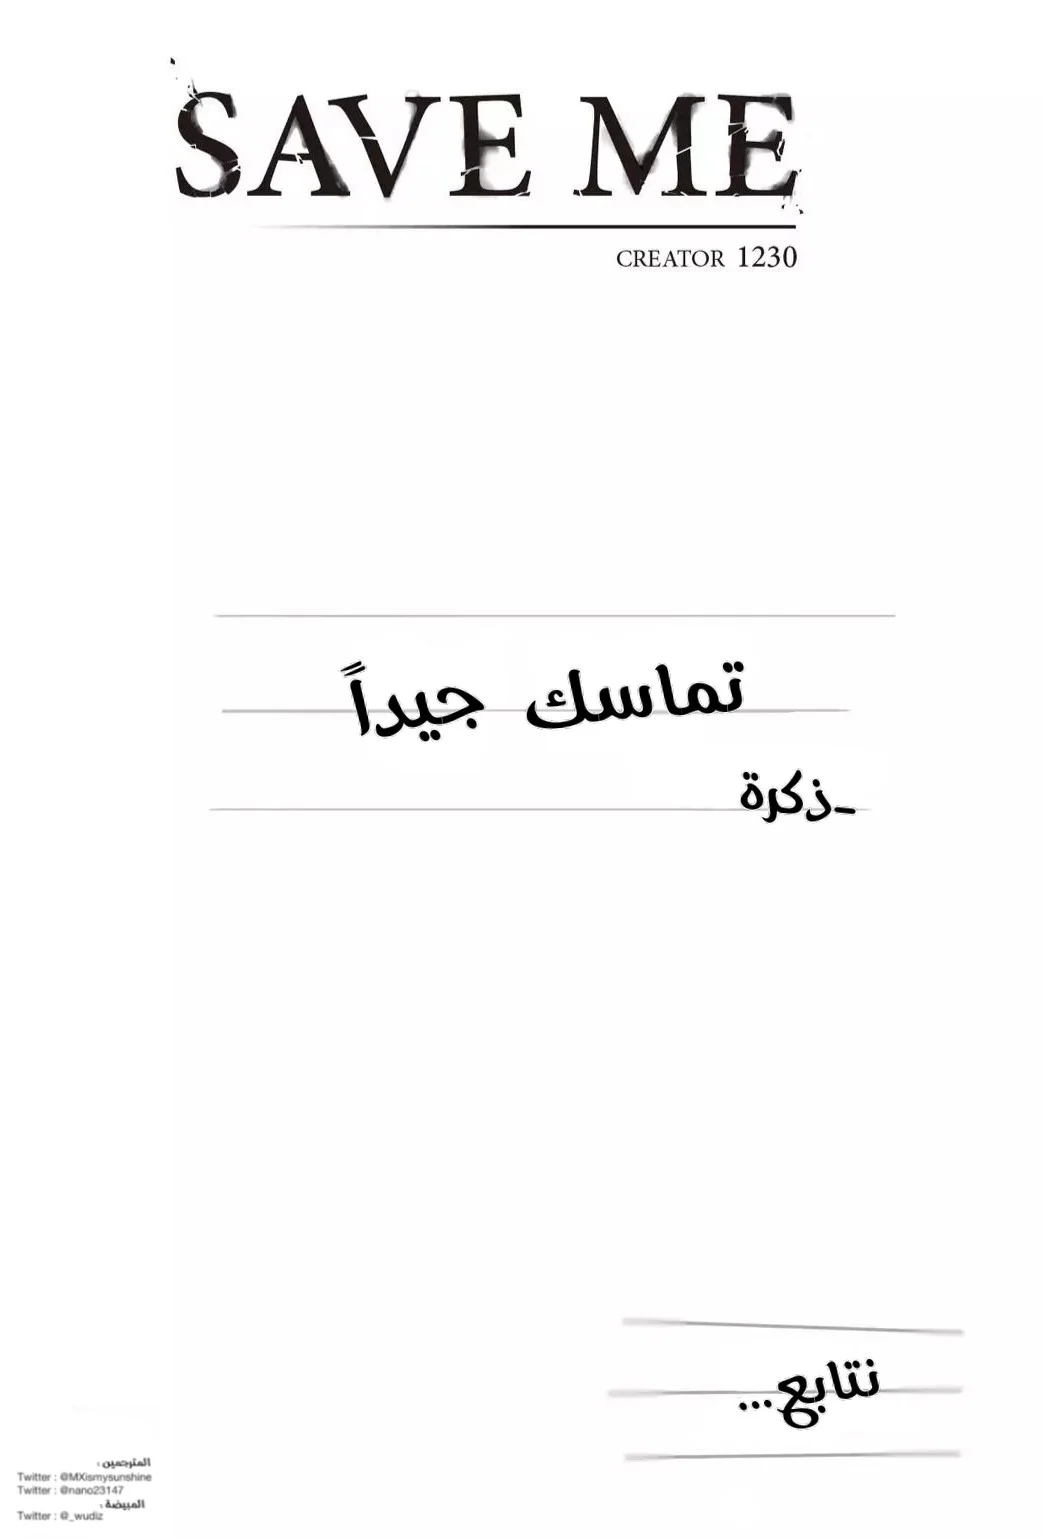 SAVE ME
CREATOR 1230
تماسك جيداً
-ذكرة
نتابع...
المترجمين :
Twitter : @MXismysunshine
Twitter : @nano23147
المبيضة :
Twitter : @_wudiz